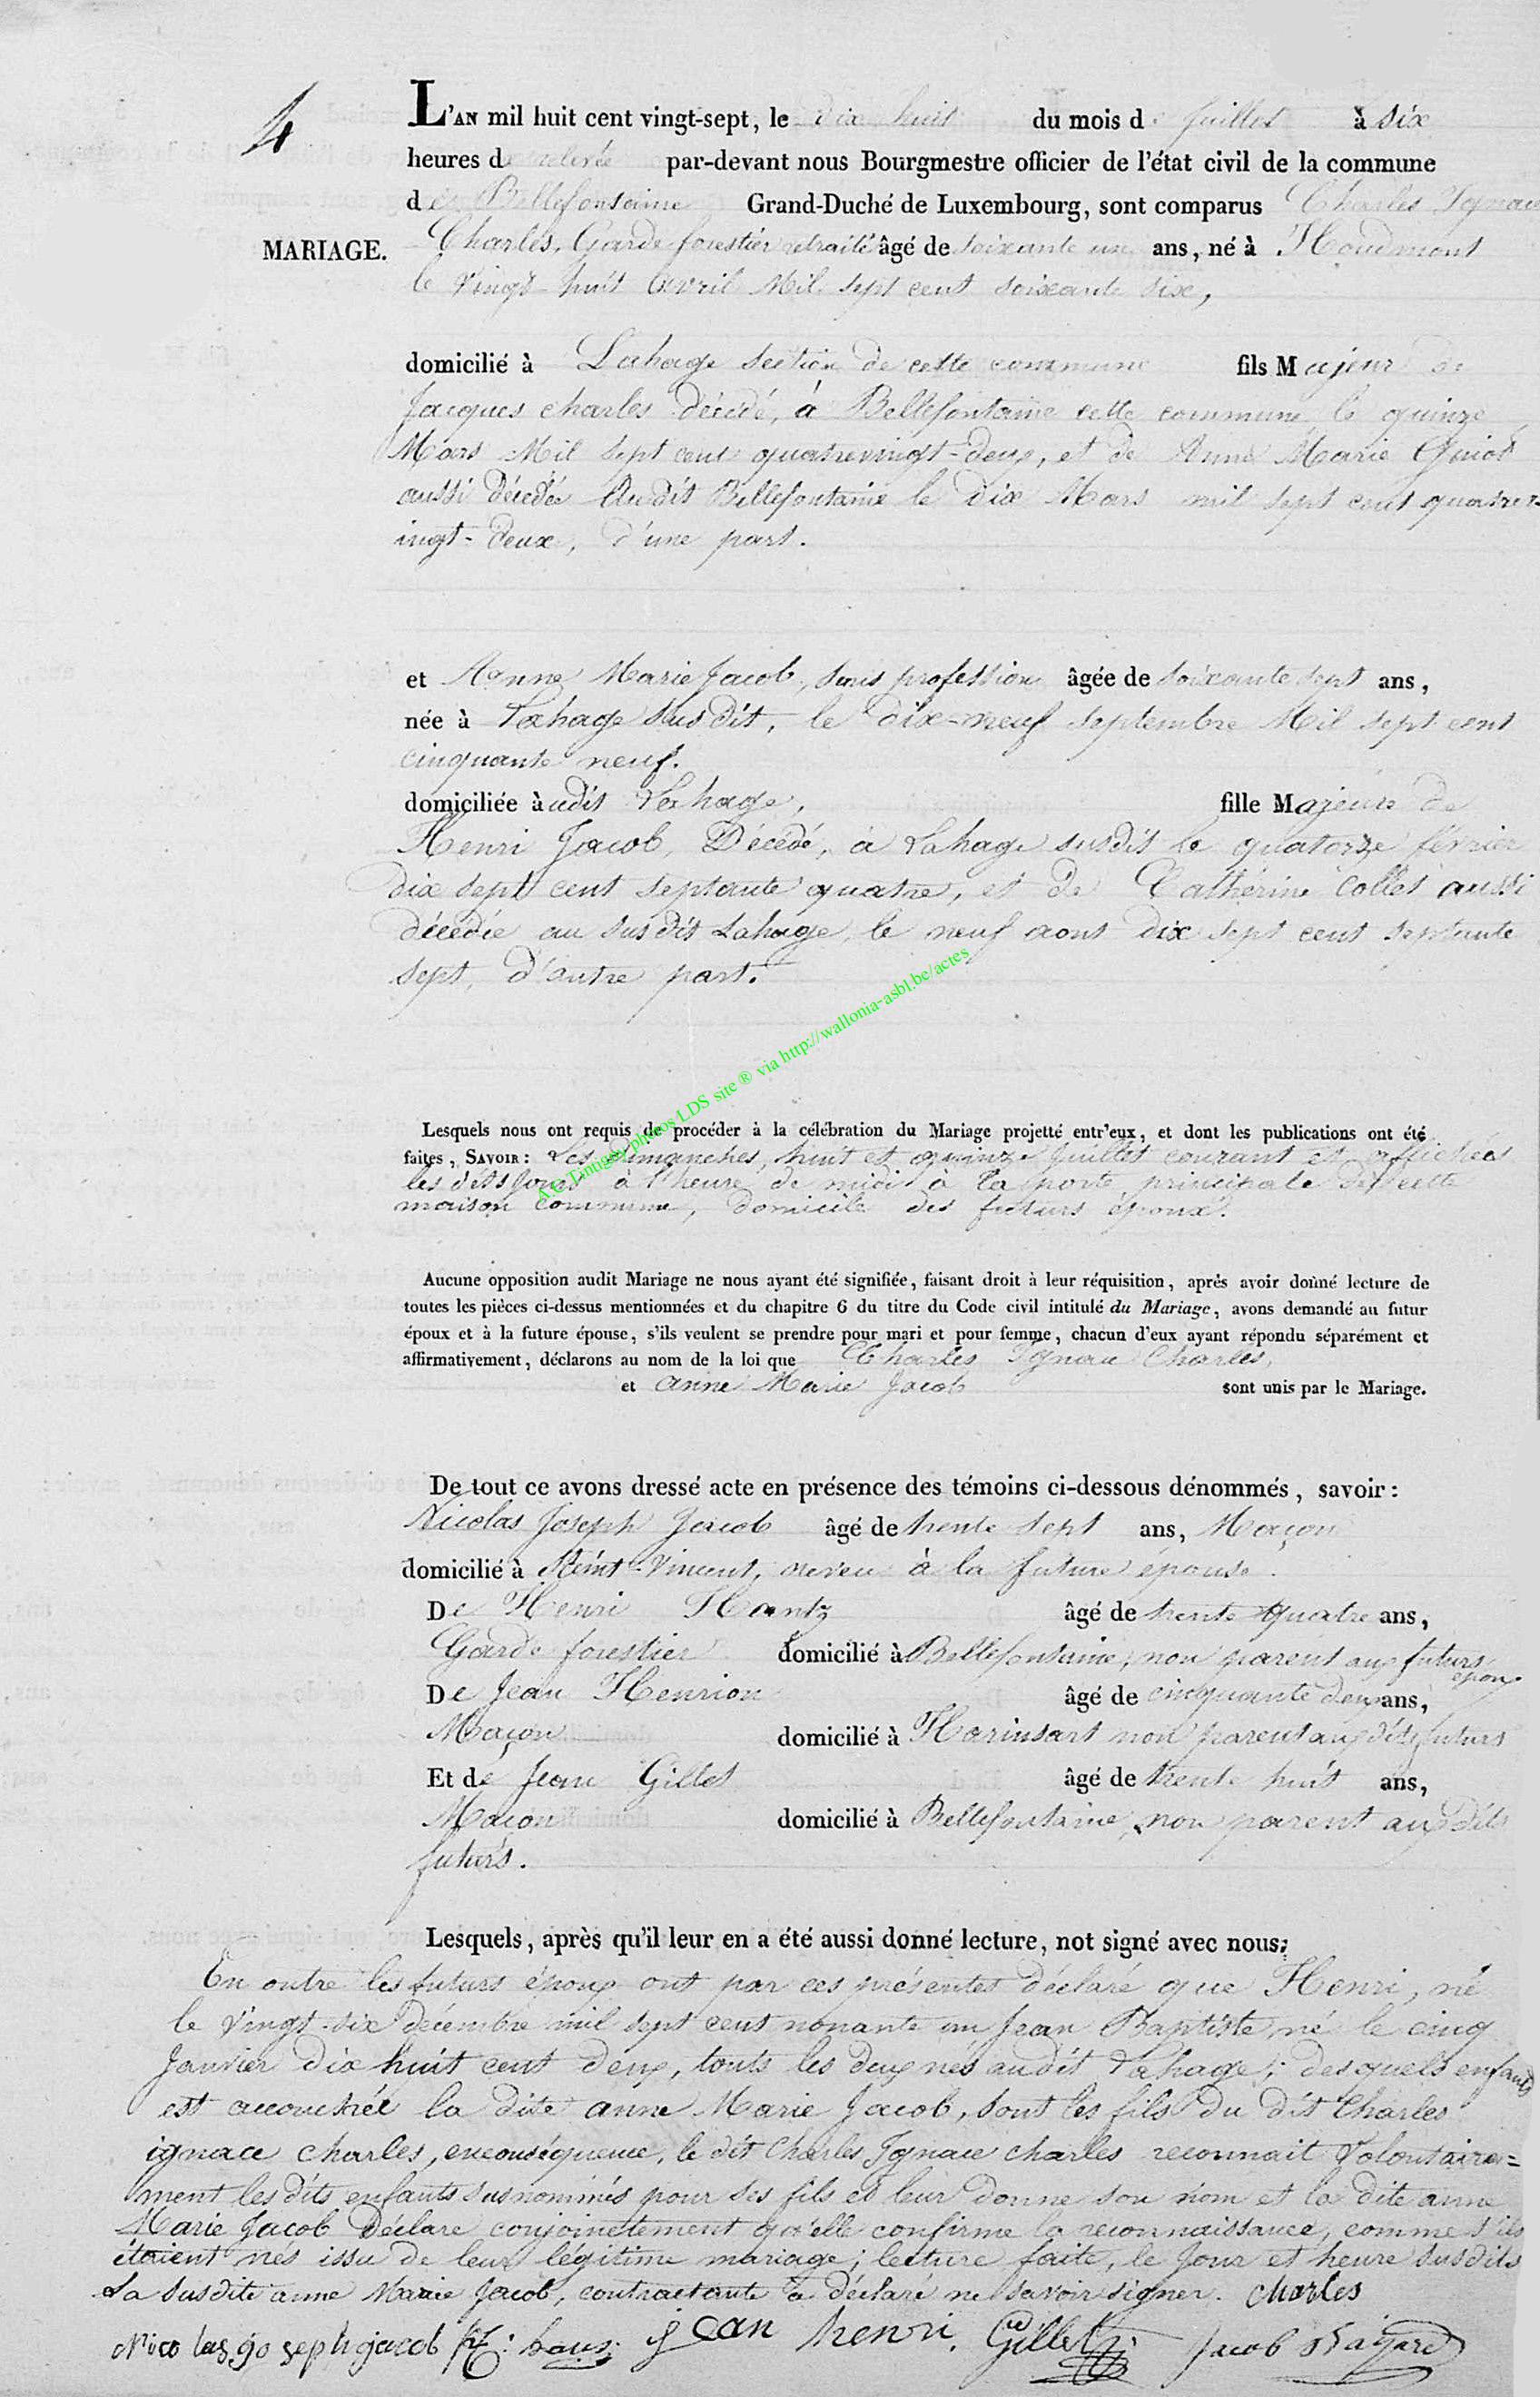 4
L'AN mil huit cent vingt-sept, le dix huit du mois de Juillet à six
heures de relevée par-devant nous Bourgmestre officier de l'état civil de la commune
de Bellefontaine Grand-Duché de Luxembourg, sont comparus Charles Ignace
MARIAGE.
Charles, Garde forestier retraité âgé de soixante un ans, né à Houdemont
le Vingt-huit Avril Mil sept cent soixante six,
domicilié à Lahage section de cette commune fils Majeur de
Jacques charles décédé, à Bellefontaine cette commune, le quinze
Mars Mil sept cent quatrevingt-deux, et de Anne Marie Guiot
aussi décédée Audit Bellefontaine le dix Mars mil sept cent quatrev-
ingt-deux, d'une part.
et Anne Marie Jacob, sans profession âgée de soixante sept ans,
née à Lahage sus dit, le dix-neuf septembre Mil sept cent
cinquante neuf.
domiciliée àudit Lahage, fille Majeure de
Henri Jacob, Décédé, à Lahage susdit le quatorze février
dix sept cent septante quatre, et de Catherine Collet aussi
décédée au susdit Lahage, le neuf aout dix sept cent septante
sept, d'autre part.
A.C. Tintigny photos LDS site ® via http://wallonia-asbl.be/actes
Lesquels nous ont requis de procéder à la célébration du Mariage projetté entr'eux, et dont les publications ont été
faites, SAVOIR: Les dimanches, huit et quinze Juillet courant et affichées
les dits jours à l'heure de midi à la porte principale de cette
maison commune, domicile des futurs époux.
Aucune opposition audit Mariage ne nous ayant été signifiée, faisant droit à leur réquisition, après avoir donné lecture de
toutes les pièces ci-dessus mentionnées et du chapitre 6 du titre du Code civil intitulé du Mariage, avons demandé au futur
époux et à la future épouse, s'ils veulent se prendre pour mari et pour femme, chacun d'eux ayant répondu séparément et
affirmativement, déclarons au nom de la loi que Charles Ignace Charles,
et anne Marie Jacob sont unis par le Mariage.
De tout ce avons dressé acte en présence des témoins ci-dessous dénommés, savoir:
Nicolas Joseph Jacob âgé de trente sept ans, Maçon
domicilié à Saint-Vincent, neveu à la future épouse.
De Henri Hantz âgé de trente quatre ans,
Garde forestier domicilié à Bellefontaine, non parent aux futurs
époux
De Jean Henrion âgé de cinquante deux ans,
Maçon domicilié à Harinsart non parent aux dits futurs
Et de Jean Gillet âgé de trente huit ans,
Maçon domicilié à Bellefontaine, non parent aux dits
futurs.
Lesquels, après qu'il leur en a été aussi donné lecture, not signé avec nous;
En outre les futurs époux ont par ces présentes déclaré que Henri, né
le vingt-six décembre mil sept cent nonante un Jean Baptiste, né le cinq
Janvier dix huit cent deux, touts les deux nés audit Lahage; desquels enfants
est accouchée la dite anne Marie Jacob, sont les fils du dit Charles
ignace charles, enconséquence, le dit Charles Ignace charles reconnait Volontaire=
ment les dits enfants susnommés pour ses fils et leur donne son nom et la dite anne
Marie Jacob Déclare conjointement qu'elle confirme la reconnaissance, comme s'ils
étaient nés issu de leur légitime mariage; lecture faite, le Jour et heure susdits
La susdite anne Marie Jacob, contractante a déclaré ne savoir signer. charles
Nico las jo seph jacob jean henri. Gillet Jacob